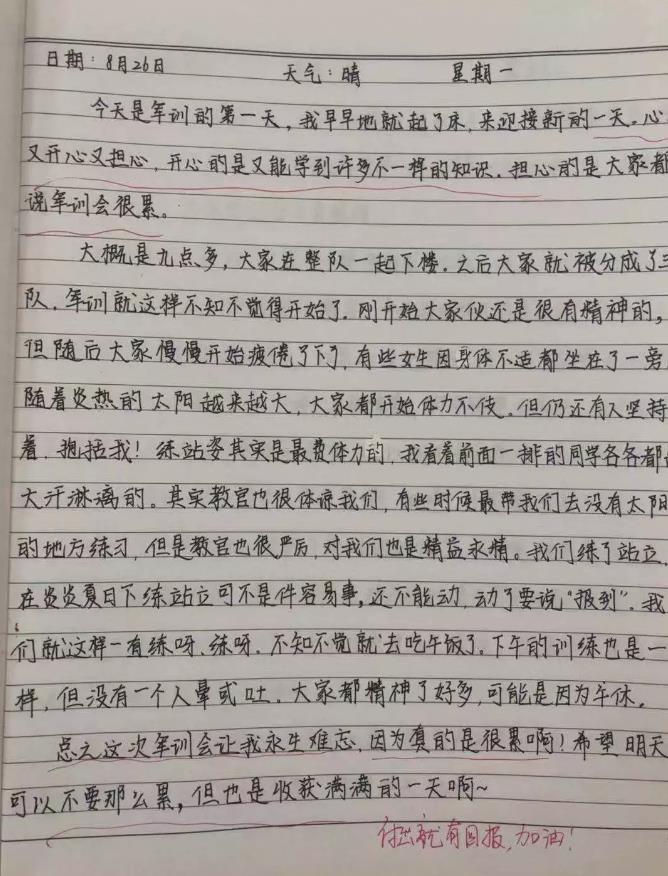 日期：8月26日 天气：晴 星期一
今天是军训的第一天，我早早地就起了床，来迎接新的一天。心
又开心又担心，开心的是又能学到许多不一样的知识，担心的是大家都
说军训会很累。
大概是九点多，大家在整队一起下楼。之后大家就被分成了三
队，军训就这样不知不觉得开始了。刚开始大家伙还是很有精神的，
但随后大家慢慢开始疲倦了下了，有些女生因身体不适都坐在了一旁
随着炎热的太阳越来越大，大家都开始体力不伎，但仍还有人坚持
着，抱括我！练站姿其实是最费体力的，我看着前面一排的同学各各都
大汗淋漓的。其实教官也很体谅我们，有些时候最带我们去没有太阳
的地方练习，但是教官也很严厉，对我们也是精益永精。我们练了站立，
在炎炎夏日下练站立可不是件容易事，还不能动，动了要说“报到”。我
们就这样一有练呀、练呀，不知不觉就去吃午饭了。下午的训练也是一
样，但没有一个人晕或吐。大家都精神了好多，可能是因为午休。
总之这次军训会让我永生难忘，因为真的是很累啊！希望明天
可以不要那么累，但也是收获满满的一天啊~
付出就有回报，加油！